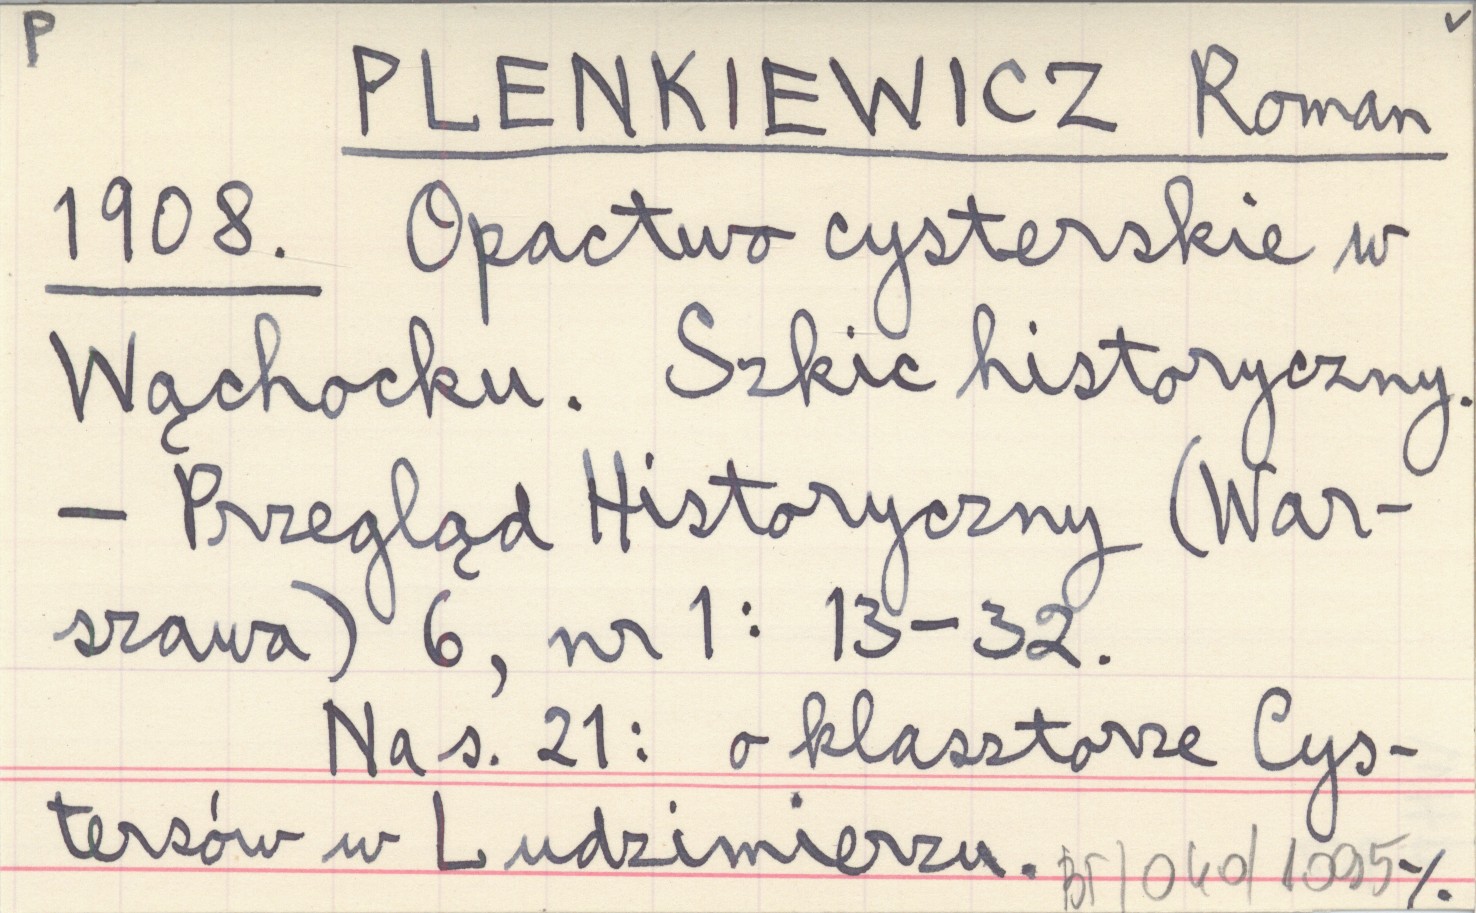 P
PLENKIEWICZ Roman
1908. Opactwo cysterskie w
Wąchocku. Szkic historyczny.
— Przegląd Historyczny (War-
szawa) 6, nr 1: 13-32.
Na s. 21: o klasztorze Cys-
tersów w Ludzimierzu.